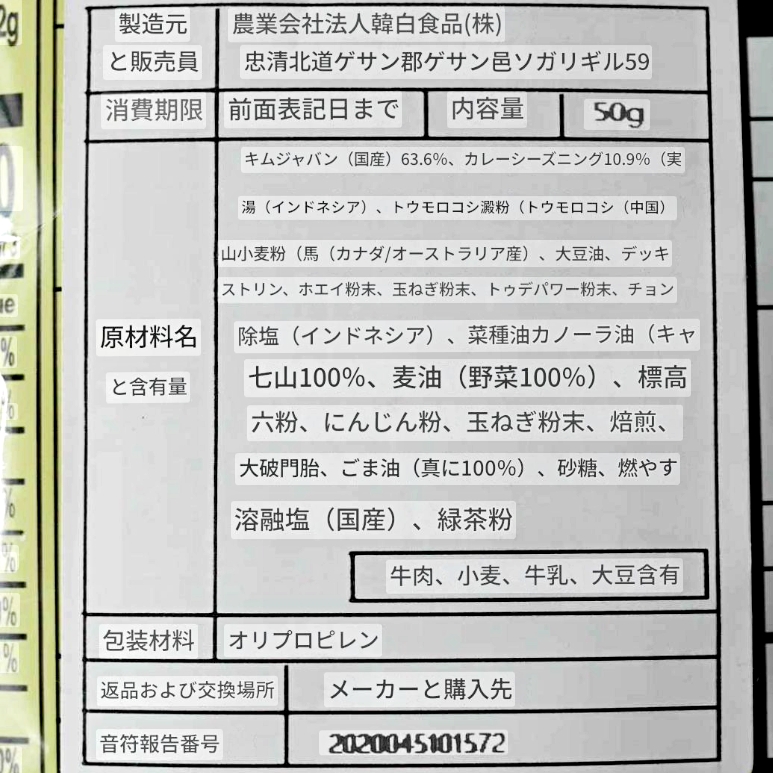 製造元
と販売員
農業会社法人韓白食品(株)
忠清北道ゲサン郡ゲサン邑ソガリギル59
消費期限
前面表記日まで
内容量
50g
原材料名
と含有量
キムジャバン（国産）63.6%、カレーシーズニング10.9%（実
湯（インドネシア）、トウモロコシ澱粉（トウモロコシ（中国）
山小麦粉（馬（カナダ/オーストラリア産）、大豆油、デッキ
ストリン、ホエイ粉末、玉ねぎ粉末、トゥデパワー粉末、チョン
除塩（インドネシア）、菜種油カノーラ油（キャ
七山100%、麦油（野菜100%）、標高
六粉、にんじん粉、玉ねぎ粉末、焙煎、
大破門胎、ごま油（真に100%）、砂糖、燃やす
溶融塩（国産）、緑茶粉
牛肉、小麦、牛乳、大豆含有
包装材料
オリプロピレン
返品および交換場所
メーカーと購入先
音符報告番号
2020045101572
2g
ue
%
%
%
%
%
%
0%